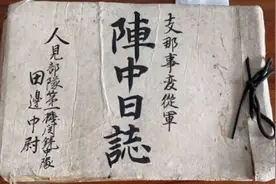 支那事変従軍
陣中日誌
人見部隊第一機関銃中隊
田邊中尉